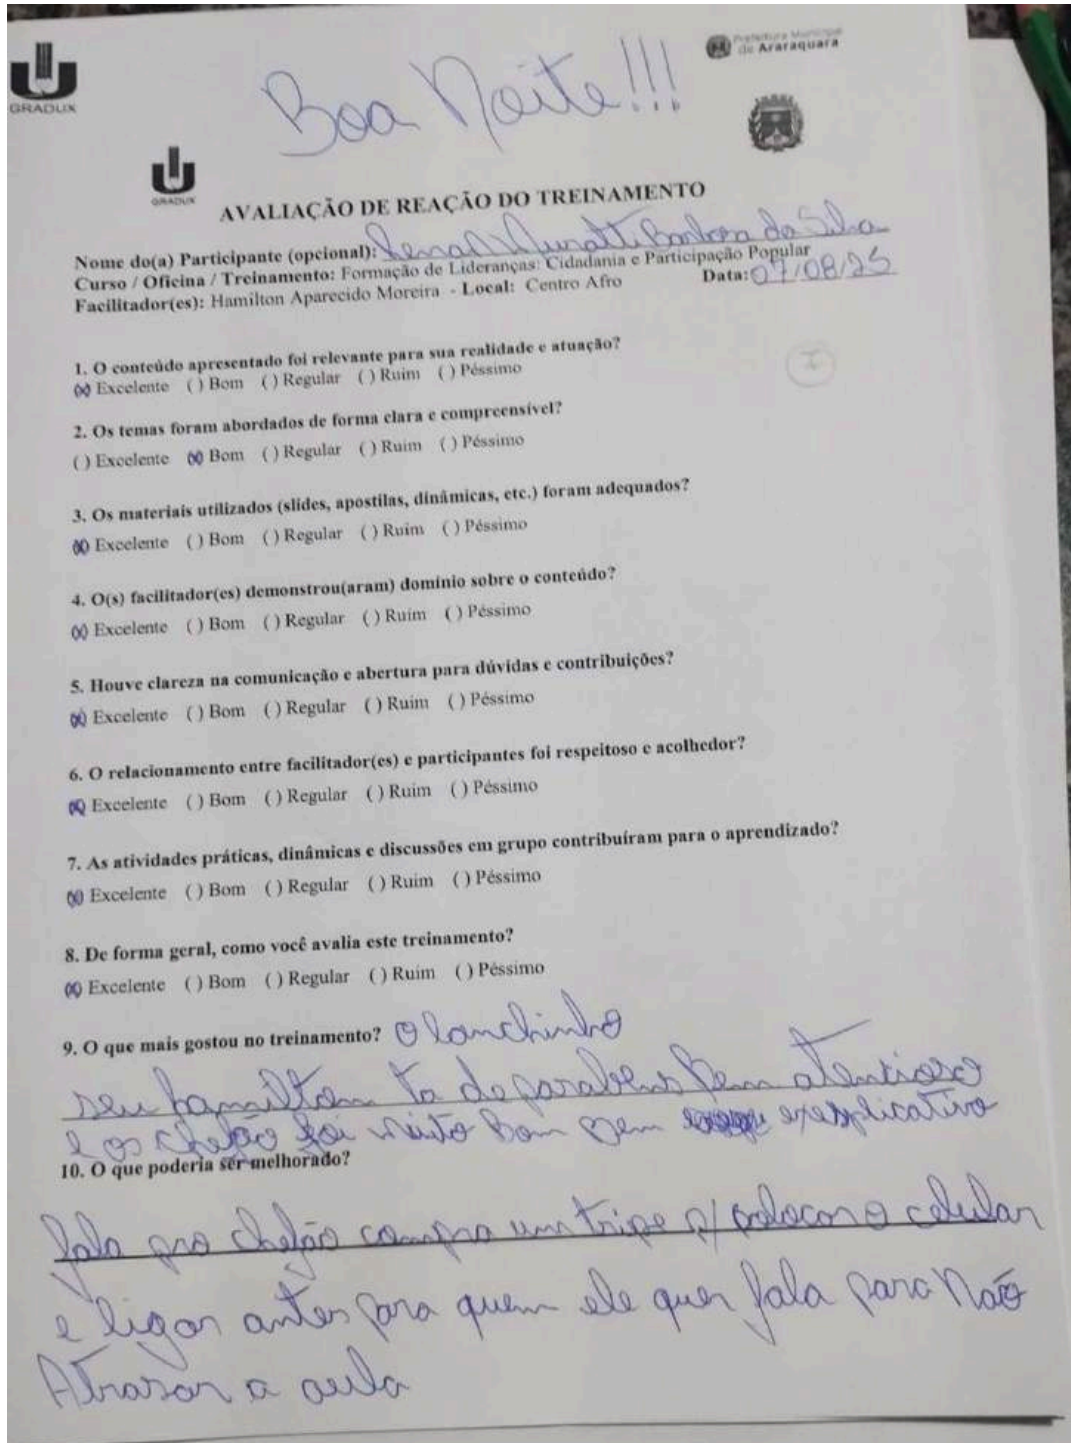 GRADUX
Prefeitura Municipal
de Araraquara
Boa Noite!!!
GRADUX
AVALIAÇÃO DE REAÇÃO DO TREINAMENTO
Nome do(a) Participante (opcional): Renan Muratti Barbosa da Silva
Curso / Oficina / Treinamento: Formação de Lideranças: Cidadania e Participação Popular
Facilitador(es): Hamilton Aparecido Moreira - Local: Centro Afro Data: 07/08/25
1. O conteúdo apresentado foi relevante para sua realidade e atuação?
(x) Excelente ( ) Bom ( ) Regular ( ) Ruim ( ) Péssimo
2. Os temas foram abordados de forma clara e compreensível?
( ) Excelente (x) Bom ( ) Regular ( ) Ruim ( ) Péssimo
3. Os materiais utilizados (slides, apostilas, dinâmicas, etc.) foram adequados?
(x) Excelente ( ) Bom ( ) Regular ( ) Ruim ( ) Péssimo
4. O(s) facilitador(es) demonstrou(aram) domínio sobre o conteúdo?
(x) Excelente ( ) Bom ( ) Regular ( ) Ruim ( ) Péssimo
5. Houve clareza na comunicação e abertura para dúvidas e contribuições?
(x) Excelente ( ) Bom ( ) Regular ( ) Ruim ( ) Péssimo
6. O relacionamento entre facilitador(es) e participantes foi respeitoso e acolhedor?
(x) Excelente ( ) Bom ( ) Regular ( ) Ruim ( ) Péssimo
7. As atividades práticas, dinâmicas e discussões em grupo contribuíram para o aprendizado?
(x) Excelente ( ) Bom ( ) Regular ( ) Ruim ( ) Péssimo
8. De forma geral, como você avalia este treinamento?
(x) Excelente ( ) Bom ( ) Regular ( ) Ruim ( ) Péssimo
9. O que mais gostou no treinamento? O lanchinho
seu hamilton ta de parabens bem atencioso
e os chefão foi muito bom bem explicativo
10. O que poderia ser melhorado?
fala pro chefão compra um tripe p/ colocar o celular
e ligar antes para quem ele quer fala para não
Atrasar a aula